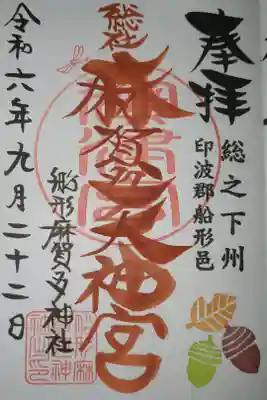 奉拝
総之下州
印波郡船形邑
総社
麻賀多大神宮
舩形麻賀多神社
令和六年九月二十二日